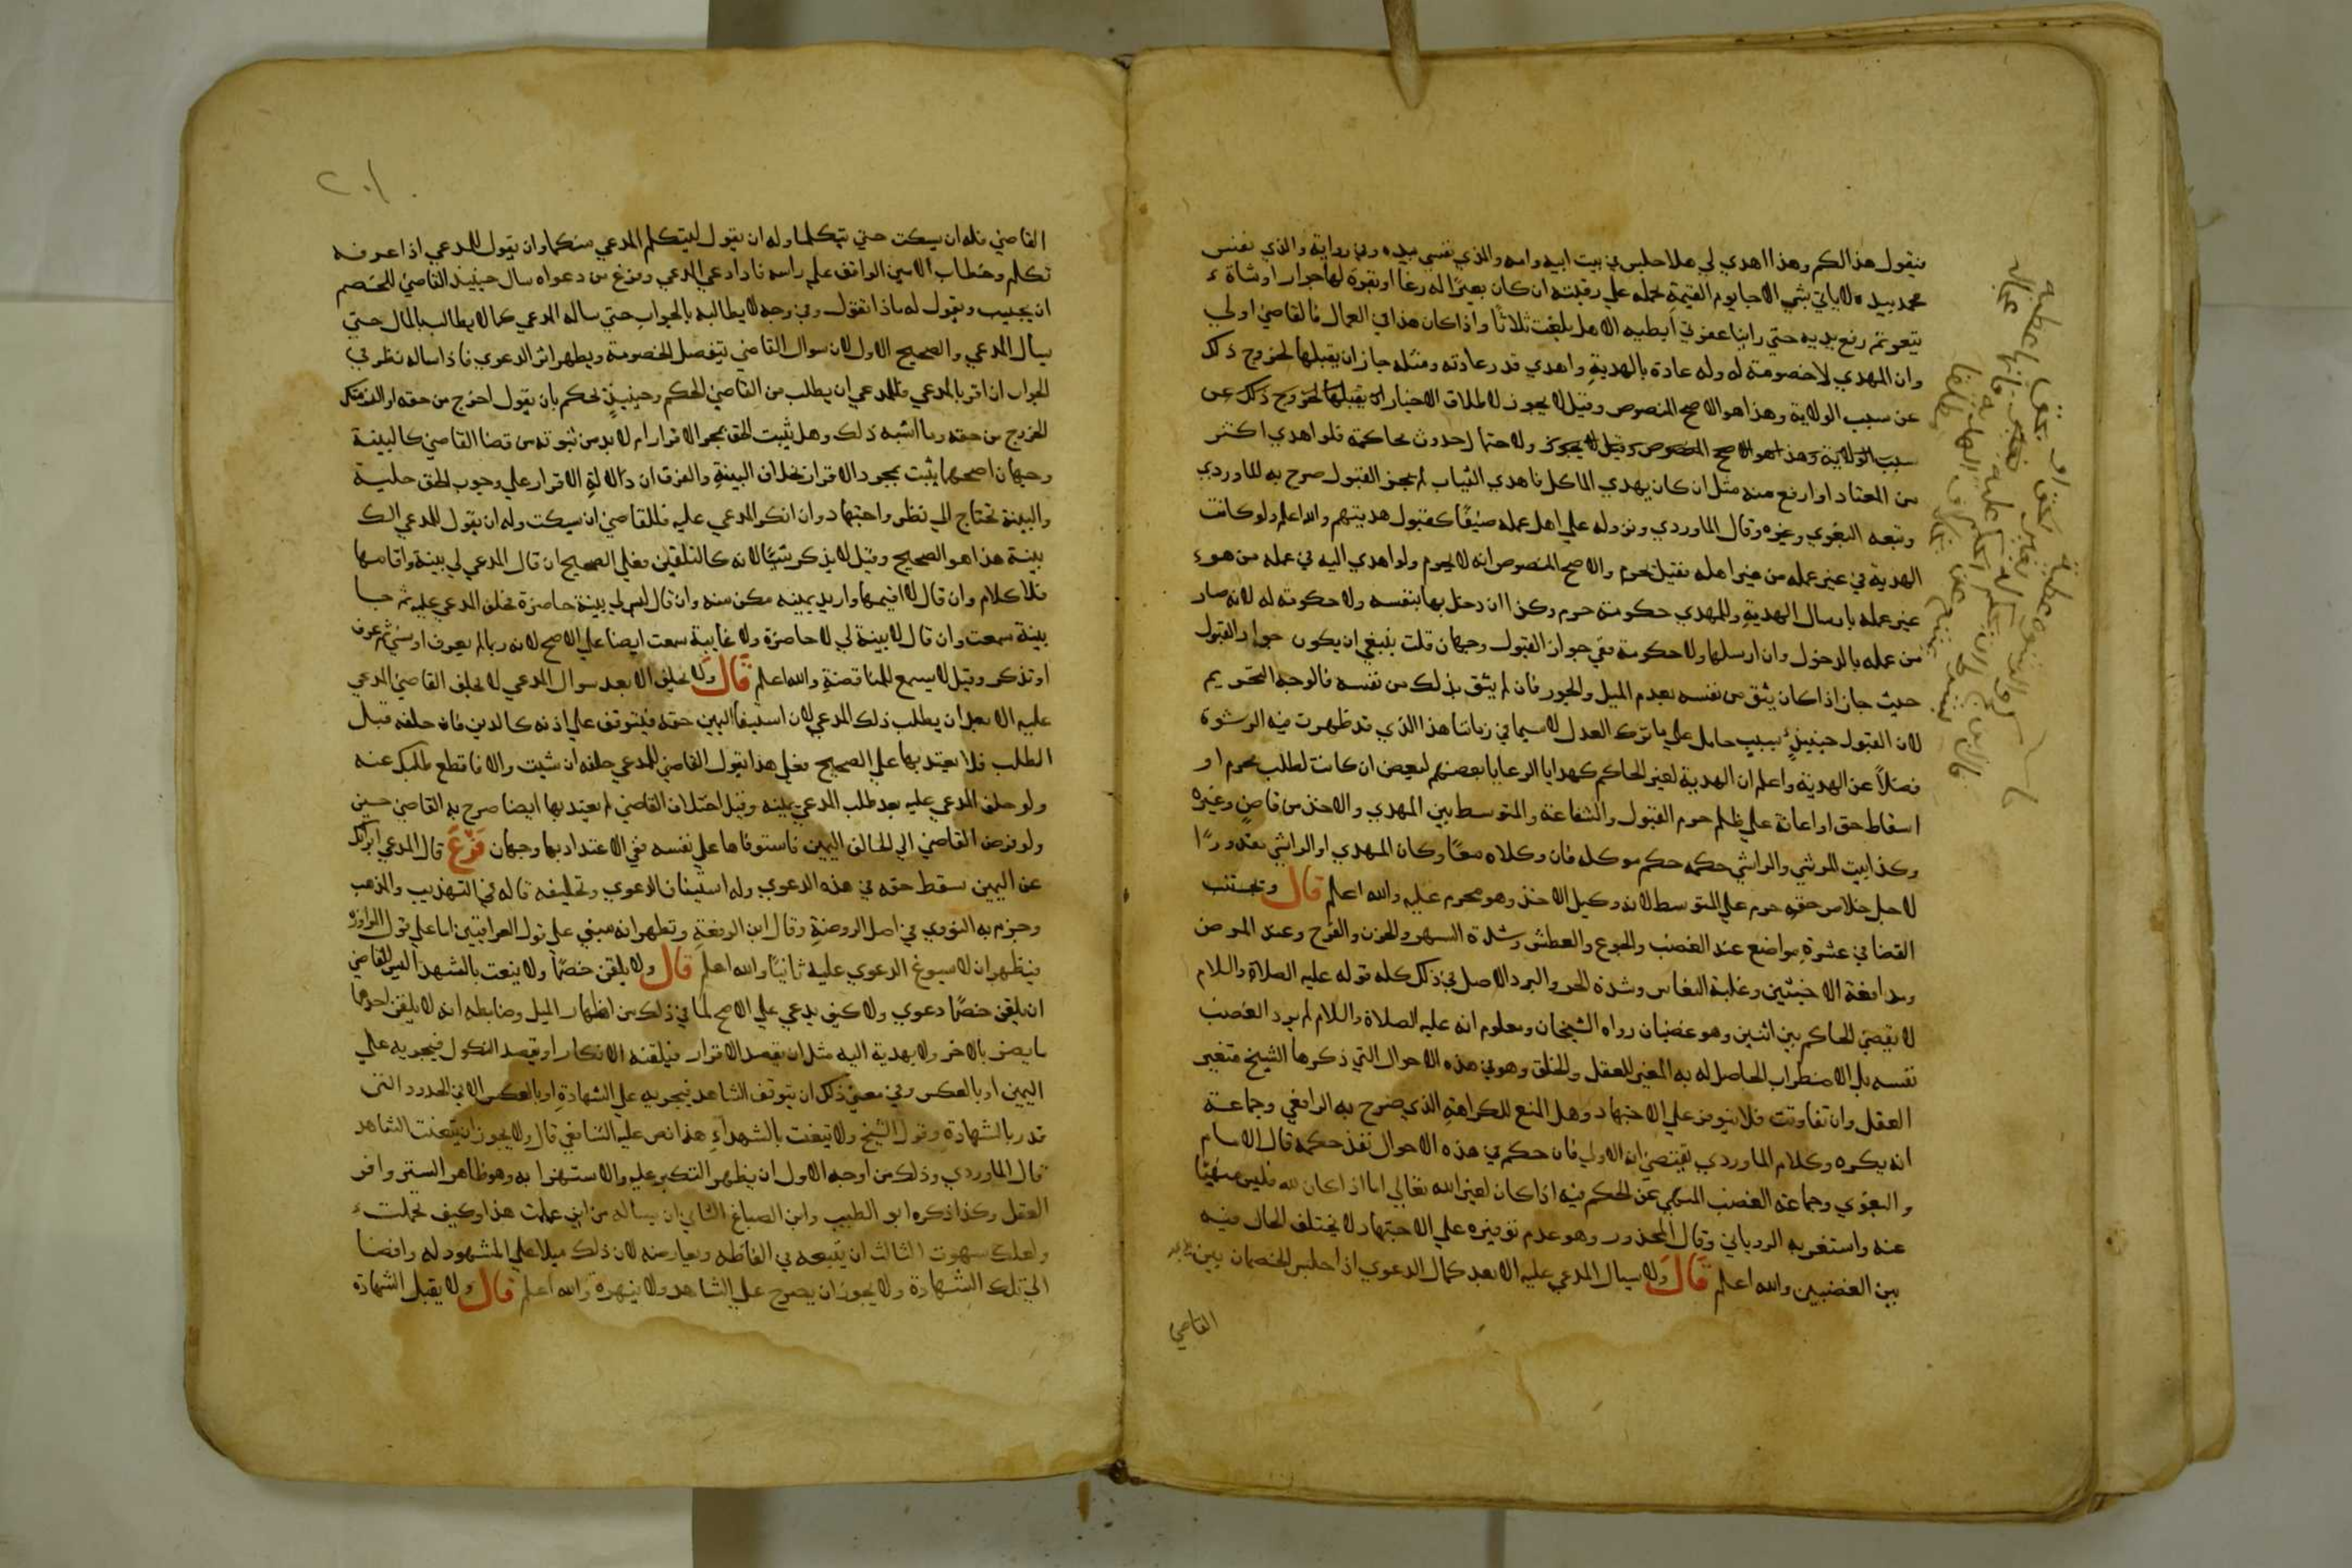 فيقول هذا لكم وهذا اهدي لي هلا جلس في بيت ابيه وامه والذي نفسي بيده وفي رواية والذي نفس
محمد بيده لا ياتي بشي الا جا يوم القيمة يحمله علي رقبته ان كان بعيرًا له رغا او بقرة لها خوار او شاة
تيعر ثم رفع يديه حتي راينا عفرتي ابطيه الا هل بلغت ثلاثا واذا كان هذا في العمال فالقاضي اولي
وان المهدي لا خصومة له وله عادة بالهدية واهدي قدر عادته ومثله جاز ان يقبلها لخروج ذلك
عن سبب الولاية وهذا هو الاصح المنصوص وقيل لا يجوز لاطلاق الاخبار ان يقبلها لخروج ذلك عن
سبب الولاية وهذا هو الاصح المنصوص وقيل لا يجوز ولاحتمال حدوث محاكمة فلو اهدي اكثر
من المعتاد او ارفع منه مثل ان كان يهدي الماكل فاهدي الثياب لم يجز القبول صرح به الماوردي
وتبعه البغوي وغيره وقال الماوردي ونزوله علي اهل عمله ضيفًا كقبول هديتهم والله اعلم ولو كانت
الهدية في غير عمله من غير اهله فقيل تحرم والاصح المنصوص انه لا يحرم ولو اهدي اليه في عمله من هو
غير عمله بارسال الهدية وللمهدي حكومة حرم وكذا ان دخل بها بنفسه ولا حكومة له لانه صار
من عمله بالدخول وان ارسلها ولا حكومة ففي جواز القبول وجهان قلت ينبغي ان يكون جواز القبول
حيث جاز اذا كان يثق من نفسه بعدم الميل والجور فان لم يثق بذلك من نفسه فالوجه التحريم
لان القبول حينيذٍ سبب حامل علي ما ترك العدل لا سيما في زماننا هذا الذي قد ظهرت فيه الرشوة
فضلاً عن الهدية واعلم ان الهدية لغير الحاكم كهدايا الرعايا بعضهم لبعض ان كانت لطلب محرم او
اسقاط حق او اعانة علي ظلم حرم القبول والشفاعة والمتوسط بين المهدي والاخذ من قاضٍ وغيره
وكذا بين المرتشي والراشي حكمه حكم موكله فان وكلاه معًا وكان المهدي او الراشي معذورًا
لاجل خلاص حقه حرم علي المتوسط لانه وكيل الاخذ وهو محرم عليه والله اعلم قال ويجتنب
القضا في عشرة مواضع عند الغضب والجوع والعطش وشدة السهر والحزن والفرح وعند المرض
ومدافعة الاخبثين وغلبة النعاس وشدة الحر والبرد الاصل في ذلك كله قوله عليه الصلاة والسلام
لا يقضي الحاكم بين اثنين وهو غضبان رواه الشيخان ومعلوم انه عليه الصلاة والسلام لم يرد الغضب
نفسه بل الاضطراب الحاصل له به المغير للعقل والخلق وهو في هذه الاحوال التي ذكرها الشيخ متغير
العقل وان تفاوتت فلا يتوفر علي الاجتهاد وهل المنع للكراهة الذي صرح به الرافعي وجماعة
انه يكره وكلام الماوردي يقتضي انه الاولي فان حكم في هذه الاحوال نفذ حكمه قال الامام
والبغوي وجماعة الغضب المنهي عن الحكم فيه اذا كان لغير الله تعالي اما اذا كان لله فليس منهيًا
عنه واستغربه الروياني وقال المحذور وهو عدم توفيره علي الاجتهاد لا يختلف الحال فيه
بين الغضبين والله اعلم قال ولا يسال المدعي عليه الا بعد كمال الدعوي اذا جلس الخصمان بين
القاضي
٢٠١
القاضي فله ان يسكت حتي يتكلما وله ان يقول ليتكلم المدعي منكما وان يقول للمدعي اذا عرفه
تكلم وخطاب الامين الواقف علي راسه فاذا ادعي المدعي وفرغ من دعواه سال حينيذ القاضي الخصم
ان يجيب ويقول له ماذا تقول وفي وجه لا يطالبه بالجواب حتي ساله المدعي كما لا يطالب بالمال حتي
يسال المدعي والصحيح الاول لان سوال القاضي تيفصل الخصومة ويظهر اثر الدعوي فاذا ساله نظر في
الجواب ان اقر بالمدعي فللمدعي ان يطلب من القاضي الحكم وحينيذٍ يحكم بان يقول اخرج من حقه او الزمتك
الخروج من حقه وما اشبه ذلك وهل يثبت الحق بمجرد الاقرار ام لا بد من ثبوته من قضا القاضي كالبينة
وجهان اصحهما يثبت بمجرد الاقرار بخلاف البينة والفرق ان دلالة الاقرار علي وجوب الحق جلية
والبينة تحتاج الي نظر واجتهاد وان انكر المدعي عليه فللقاضي ان يسكت وله ان يقول للمدعي الك
بينة هذا هو الصحيح وقيل لا يذكر شيًا لانه كالتلقين فعلي الصحيح ان قال المدعي لي بينة واقامها
فلا كلام وان قال لا اقيمها واريد يمينه مكن منه وان قال ليس لي بينة حاضرة فحلف المدعي عليه ثم جا
بينة سمعت وان قال لا بينة لي لا حاضرة ولا غايبة سمعت ايضا علي الاصح لانه ربما لم يعرف او نسي ثم عرف
او تذكر وقيل لا يسمع للمناقضة والله اعلم قال ولا يحلف الا بعد سوال المدعي لا يحلف القاضي المدعي
عليه الا بعد ان يطلب ذلك المدعي لان استيفا اليمين حقه فيتوقف علي اذنه كالدين فان حلفه قبل
الطلب فلا يعتد بها علي الصحيح فعلي هذا يقول القاضي للمدعي حلفه ان شيت والا فاقطع طلبك عنه
ولو حلف المدعي عليه بعد طلب المدعي يمينه وقبل احلاف القاضي لم يعتد بها ايضا صرح به القاضي حسين
ولو فوض القاضي الي الحالف اليمين فاستوفاها علي نفسه ففي الاعتداد بها وجهان فرع قال المدعي ابراتك
عن اليمين سقط حقه في هذه الدعوي وله استيناف الدعوي وتحليفه قاله في التهذيب والمذهب
وجزم به النووي في اصل الروضة وقال ابن الرفعة ويظهر انه مبني علي قول العراقيين اما علي قول المراوزة
فيظهر ان لا سوغ الدعوي عليه ثانيًا والله اعلم قال ولا يلقن خصمًا ولا يتعنت بالشهدا ليس للقاضي
ان يلقن خصمًا دعوي ولا كيف يدعي علي الاصح لما في ذلك من اظهار الميل وضابطه انه لا يلقن احدهما
ما يضر بالاخر ولا يهدية اليه مثل ان يقصد الاقرار فيلقنه الانكار او يقصد النكول فيجريه علي
اليمين او بالعكس وفي معني ذلك ان يتوقف الشاهد فيجريه علي الشهادة او بالعكس الا في الحدود التي
تدر بالشهادة وقول الشيخ ولا يتعنت بالشهدآء هذا نص عليه الشافعي قال ولا يجوز ان يتعنت الشاهد
قال الماوردي وذلك من اوجه الاول ان يظهر التكبر عليه والاستهزا به وهو ظاهر الستر وافر
العقل وكذا ذكره ابو الطيب وابن الصباغ الثاني ان يساله من اين علمت هذا وكيف تحملت
ولعلك سهوت الثالث ان يتبعه في الفاظه ويعارضه لان ذلك ميلا علي المشهود له وافضا
الي تلك الشهادة ولا يجوز ان يصرح علي الشاهد ولا ينهره والله اعلم قال ولا يقبل الشهادة